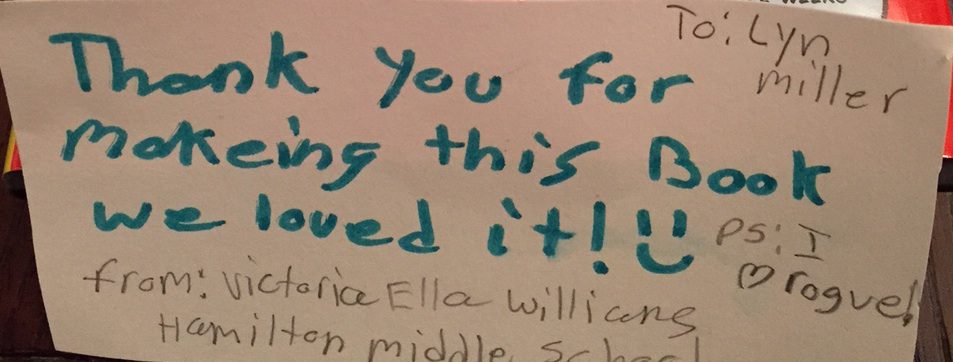 To: Lyn
miller
Thank you for
makeing this Book
we loved it! :)
PS: I
♡ rogue!
from: Victoria Ella Williams
Hamilton middle School